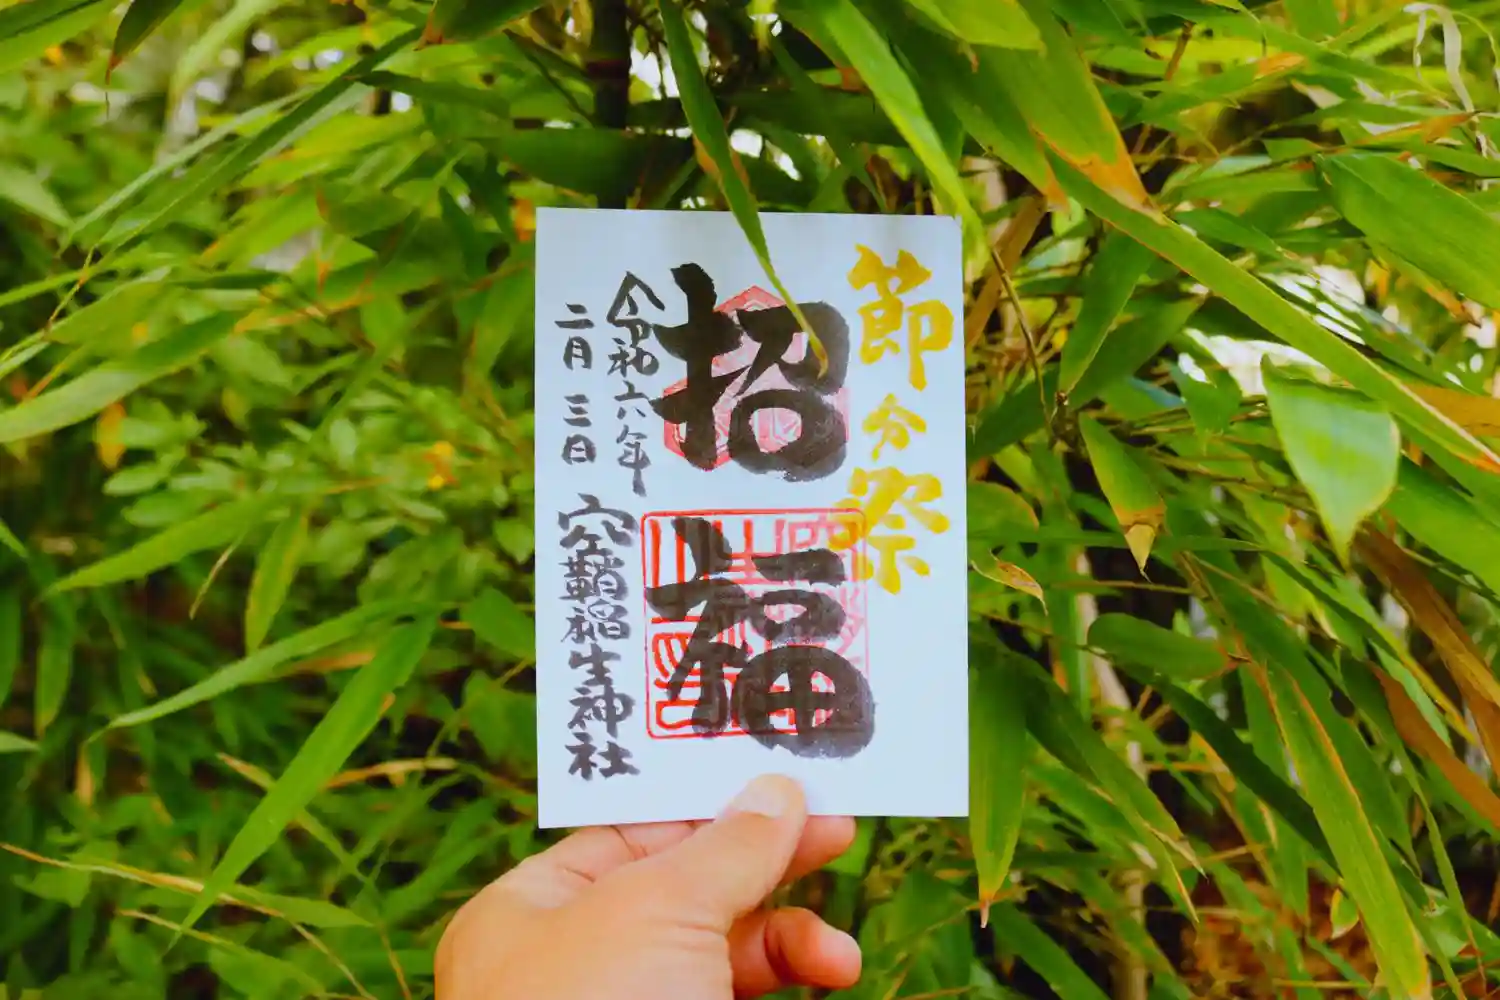 節分祭
招福
令和六年
二月三日
空鞘稲生神社